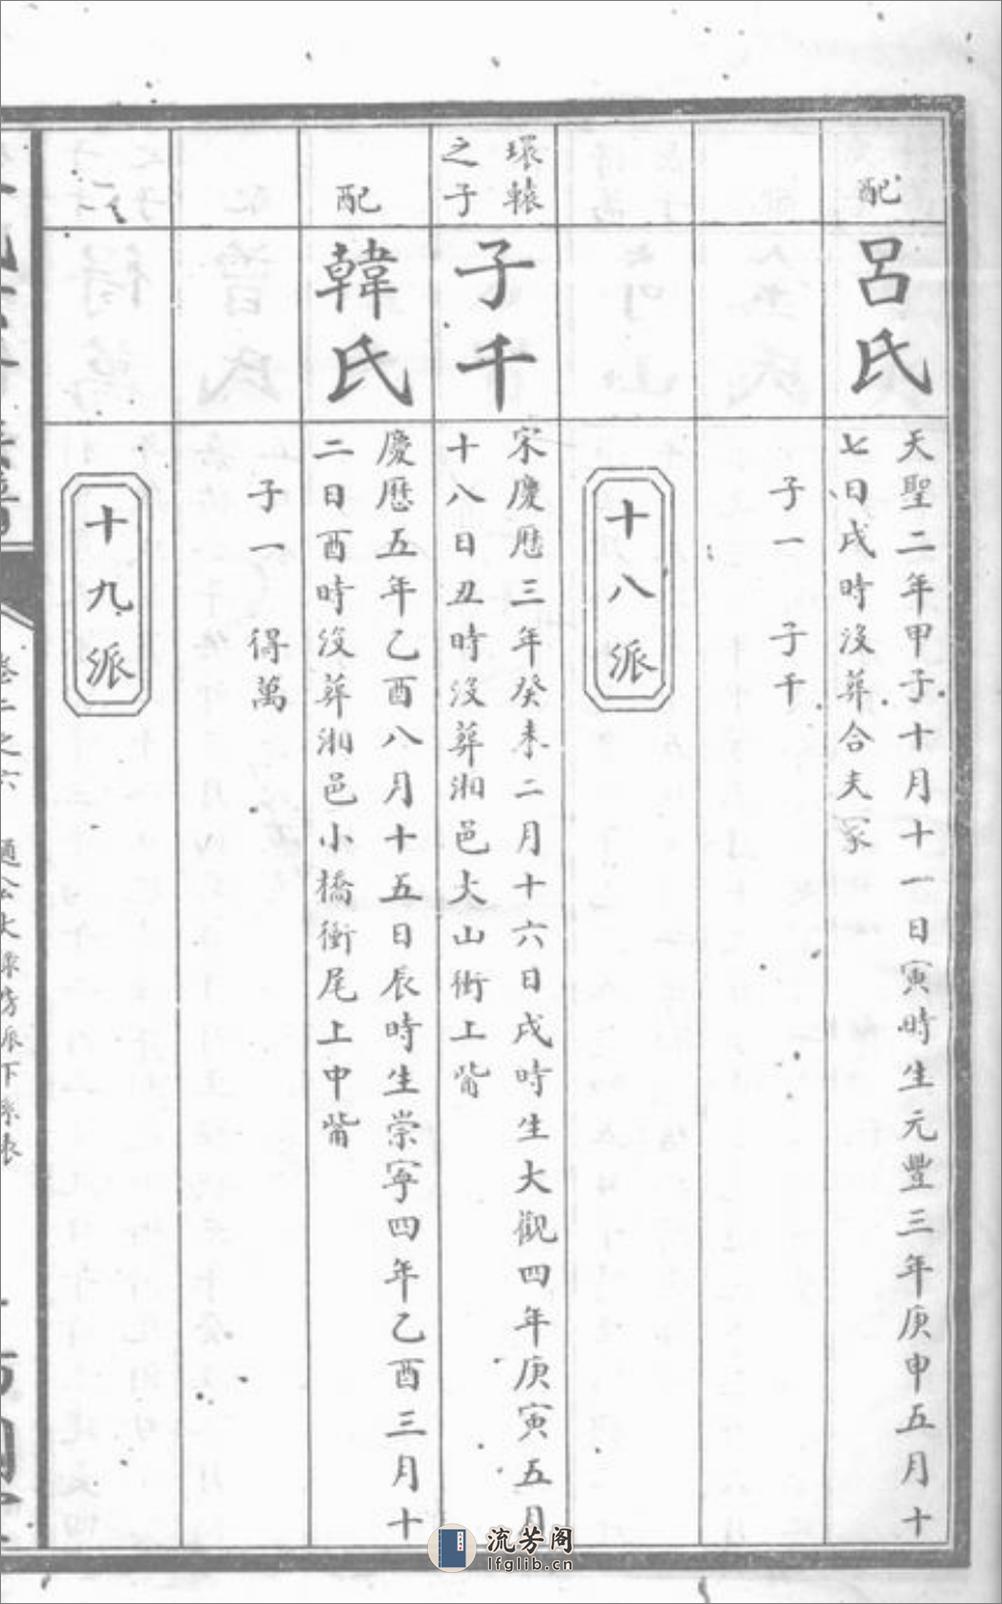 配
呂氏
天聖二年甲子十月十一日寅時生元豐三年庚申五月十
七日戌時沒葬合夫冢
子一 子千
十八派
環轅
之子
子千
宋慶曆三年癸未二月十六日戌時生大觀四年庚寅五月
十八日丑時沒葬湘邑大山衝上觜
配
韓氏
慶曆五年乙酉八月十五日辰時生崇寧四年乙酉三月十
二日酉時沒葬湘邑小橋衝尾上申觜
子一 得萬
十九派
卷二之六
流芳阁
lfglib.cn